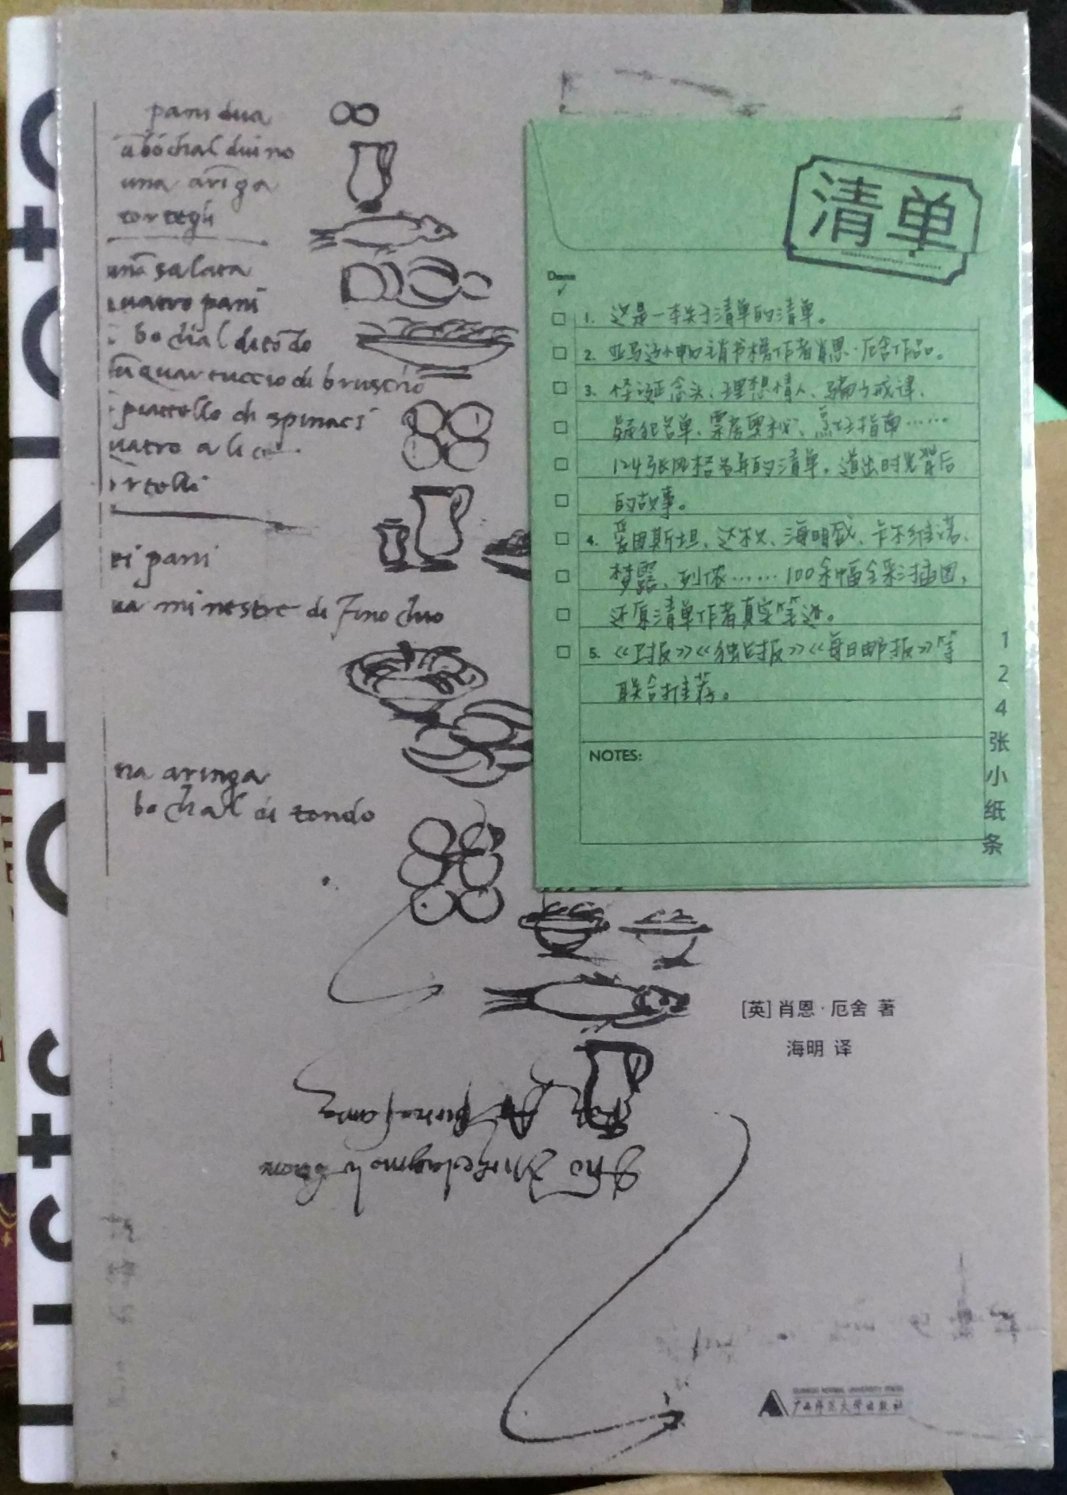 pani dua
una aringa
tortegli
una salata
quatro pani
bo chal di tōdo
quartuccio di bruschio
piattello di spinaci
quatro alice
tortelli
sei pani
minestre di finochio
una aringa
bochal di tondo
清单
Done
1. 这是一本关于清单的清单。
2. 亚马逊小中口消书榜作者肖恩·厄舍作品。
3. 怪诞念头、理想情人、骗子戒律、
疑犯名单、票房奥秘、烹饪指南……
124张风格各异的清单,道出时光背后
的故事。
4. 爱因斯坦、达·芬奇、海明威、卡尔维诺、
梦露、列侬……100余幅全彩插图,
还原清单作者真实笔迹。
5. 《卫报》《独立报》《每日邮报》等
联合推荐。
NOTES:
124张小纸条
[英] 肖恩·厄舍 著
海明 译
GUANGXI NORMAL UNIVERSITY PRESS
广西师范大学出版社